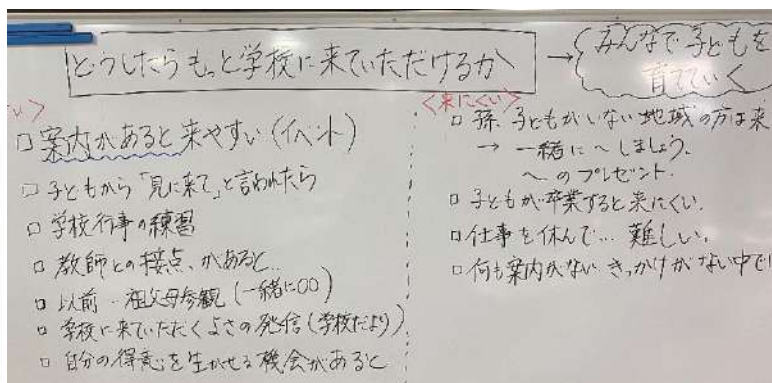 どうしたらもっと学校に来ていただけるか
→ みんなで子どもを
育てていく
い>
□ 案内があると来やすい (イベント)
□ 子どもから「見に来て」と言われたら
□ 学校行事の練習
□ 教師との接点、があると…
□ 以前…祖父母参観 (一緒に○○)
□ 学校に来ていただくよさの発信 (学校だより)
□ 自分の得意を生かせる機会があると
<来にくい>
□ 孫、子どもがいない地域の方は来
→ 一緒に〜しましょう、
〜のプレゼント、
□ 子どもが卒業すると来にくい、
□ 仕事を休んで…難しい、
□ 何も案内がない きっかけがない中で